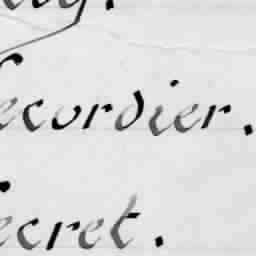 ecordier.
ecret.